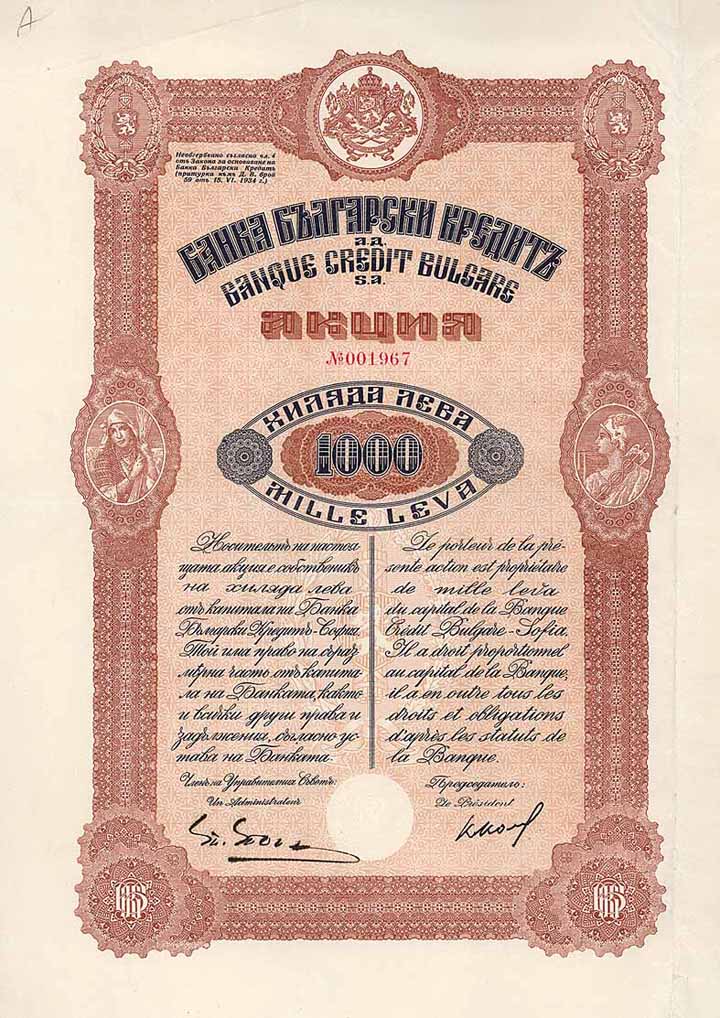 A
Необгербвано съгласно чл. 4
отъ Закона за основаване на
Банка Български Кредитъ
(притурка къмъ Д. В. брой
59 отъ 15. VI. 1934 г.)
БАНКА БЪЛГАРСКИ КРЕДИТЪ
А.Д.
BANQUE CRÉDIT BULGARE
S.A.
АКЦИЯ
№001967
ХИЛЯДА ЛЕВА
1000
MILLE LEVA
Носительтъ на настоя-
щата акция е собственикъ
на хиляда лева
отъ капитала на Банка
Български Кредитъ-София.
Той има право на съраз
мѣрна часть отъ капита-
ла на Банката, както
и всички други права и
задължения, съгласно ус-
тава на Банката.
Le porteur de la pré-
sente action est propriétaire
de mille leva
du capital de la Banque
Crédit Bulgare-Sofia.
Il a droit proportionnel
au capital de la Banque,
il a en outre tous les
droits et obligations
d'après les statuts de
la Banque.
Членъ на Управителния Съветъ:
Un Administrateur
Председатель:
Le Président